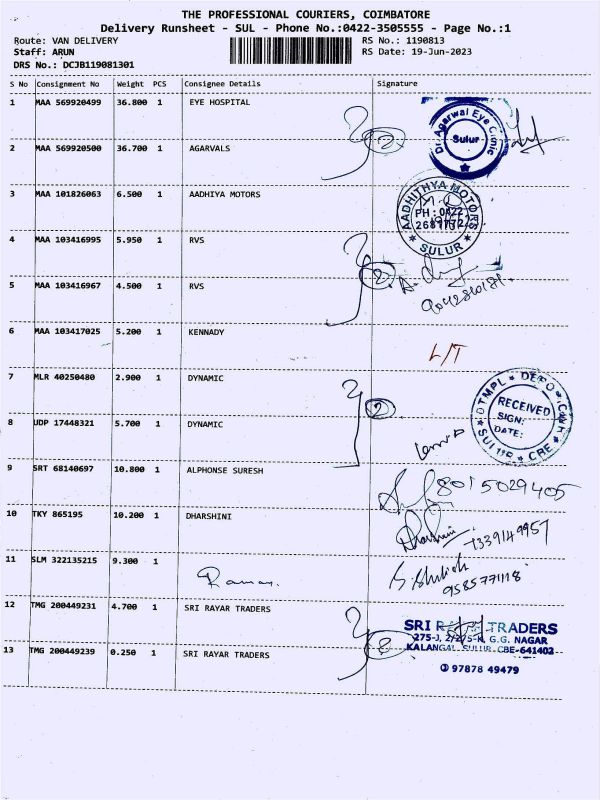 THE PROFESSIONAL COURIERS, COIMBATORE
Delivery Runsheet - SUL - Phone No.:0422-3505555 - Page No.:1
Route: VAN DELIVERY RS No.: 1190813
Staff: ARUN RS Date: 19-Jun-2023
DRS No.: DCJB119081301
S No Consignment No Weight PCS Consignee Details Signature
1 MAA 569920499 36.800 1 EYE HOSPITAL
Dr.Agarwal Eye Clinic
Sulur
2 MAA 569920500 36.700 1 AGARVALS 2
3 MAA 101826063 6.500 1 AADHIYA MOTORS
AADHITHYA MOTORS
PH : 0422
SULUR
4 MAA 103416995 5.950 1 RVS
2
5 MAA 103416967 4.500 1 RVS
6 MAA 103417025 5.200 1 KENNADY
L/T
7 MLR 40250480 2.900 1 DYNAMIC
2
DTMPL DEPO
RECEIVED
SIGN:
DATE:
SULUR CBE
8 UDP 17448321 5.700 1 DYNAMIC
9 SRT 68140697 10.800 1 ALPHONSE SURESH
8015029405
10 TKY 865195 10.200 1 DHARSHINI
Dharshini
7339149957
11 SLM 322135215 9.300 1
Raman
12 TMG 200449231 4.700 1 SRI RAYAR TRADERS
2
SRI TRADERS
G.G. NAGAR
KALANGAL SULUR CBE-641402
97878 49479
13 TMG 200449239 0.250 1 SRI RAYAR TRADERS